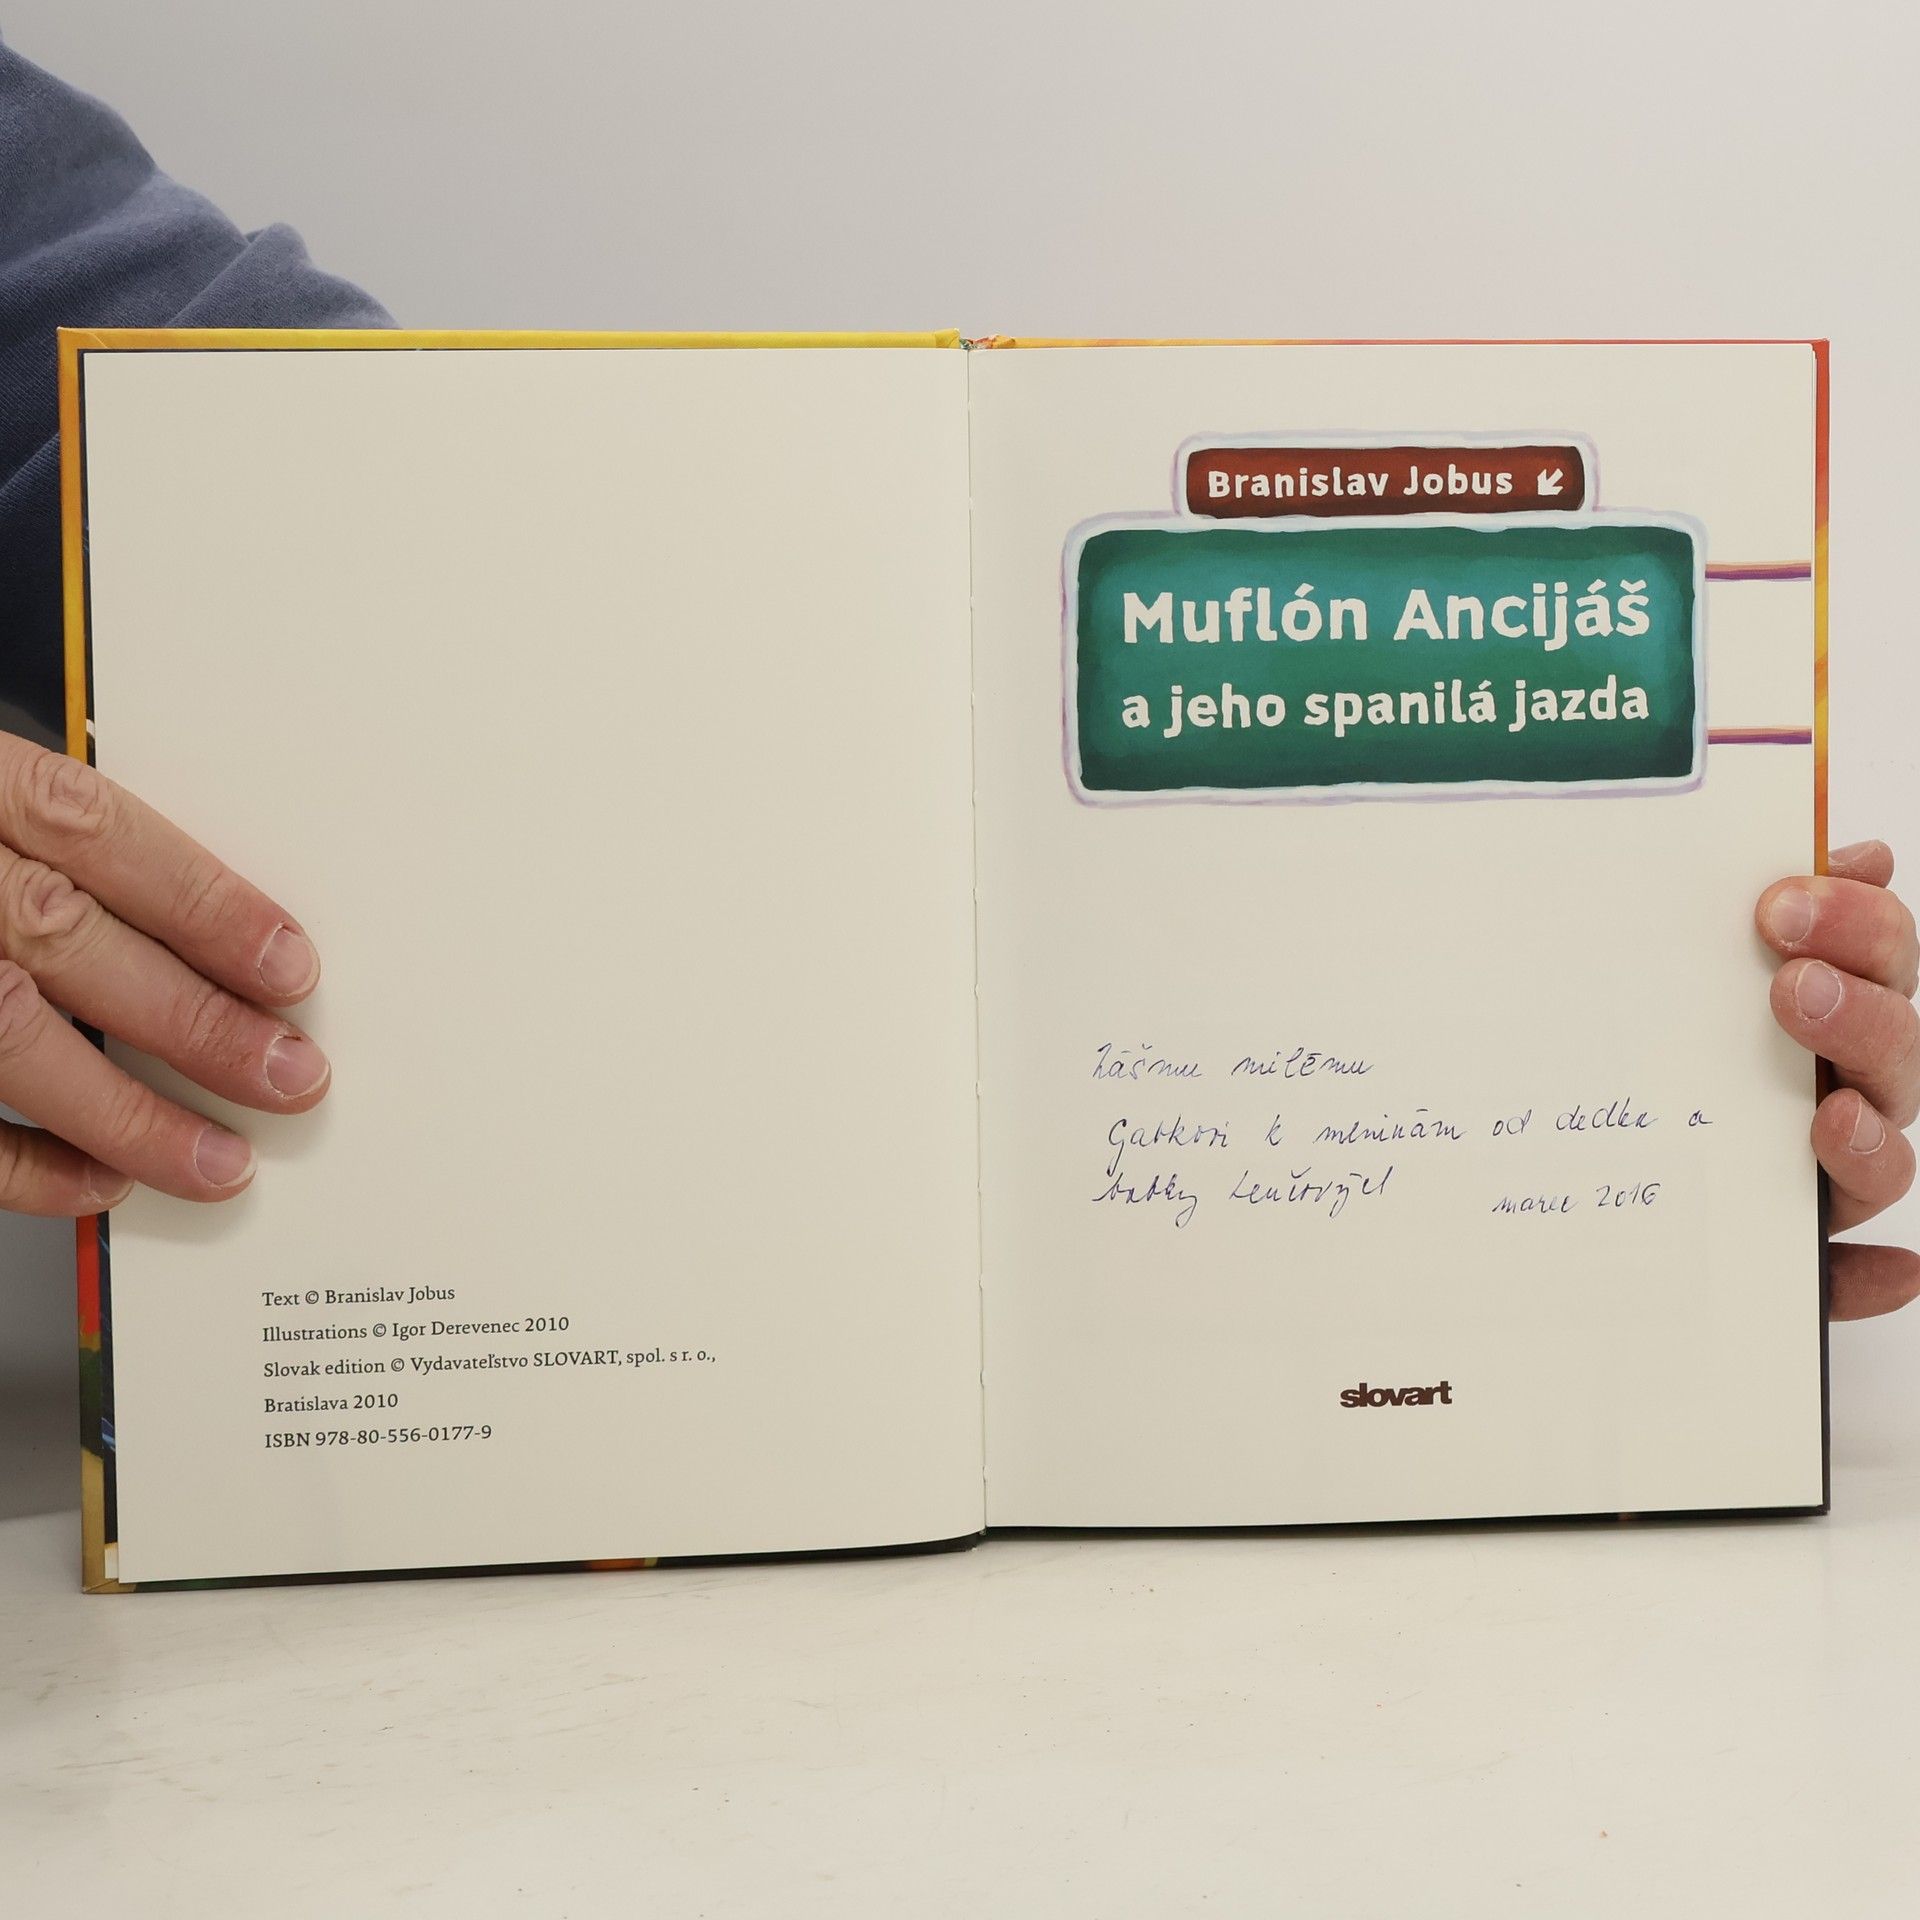 Text © Branislav Jobus
Illustrations © Igor Derevenec 2010
Slovak edition © Vydavateľstvo SLOVART, spol. s r. o.,
Bratislava 2010
ISBN 978-80-556-0177-9
Branislav Jobus ↙
Muflón Ancijáš
a jeho spanilá jazda
milému
k meninám od dedka a
babky
marec 2016
slovart